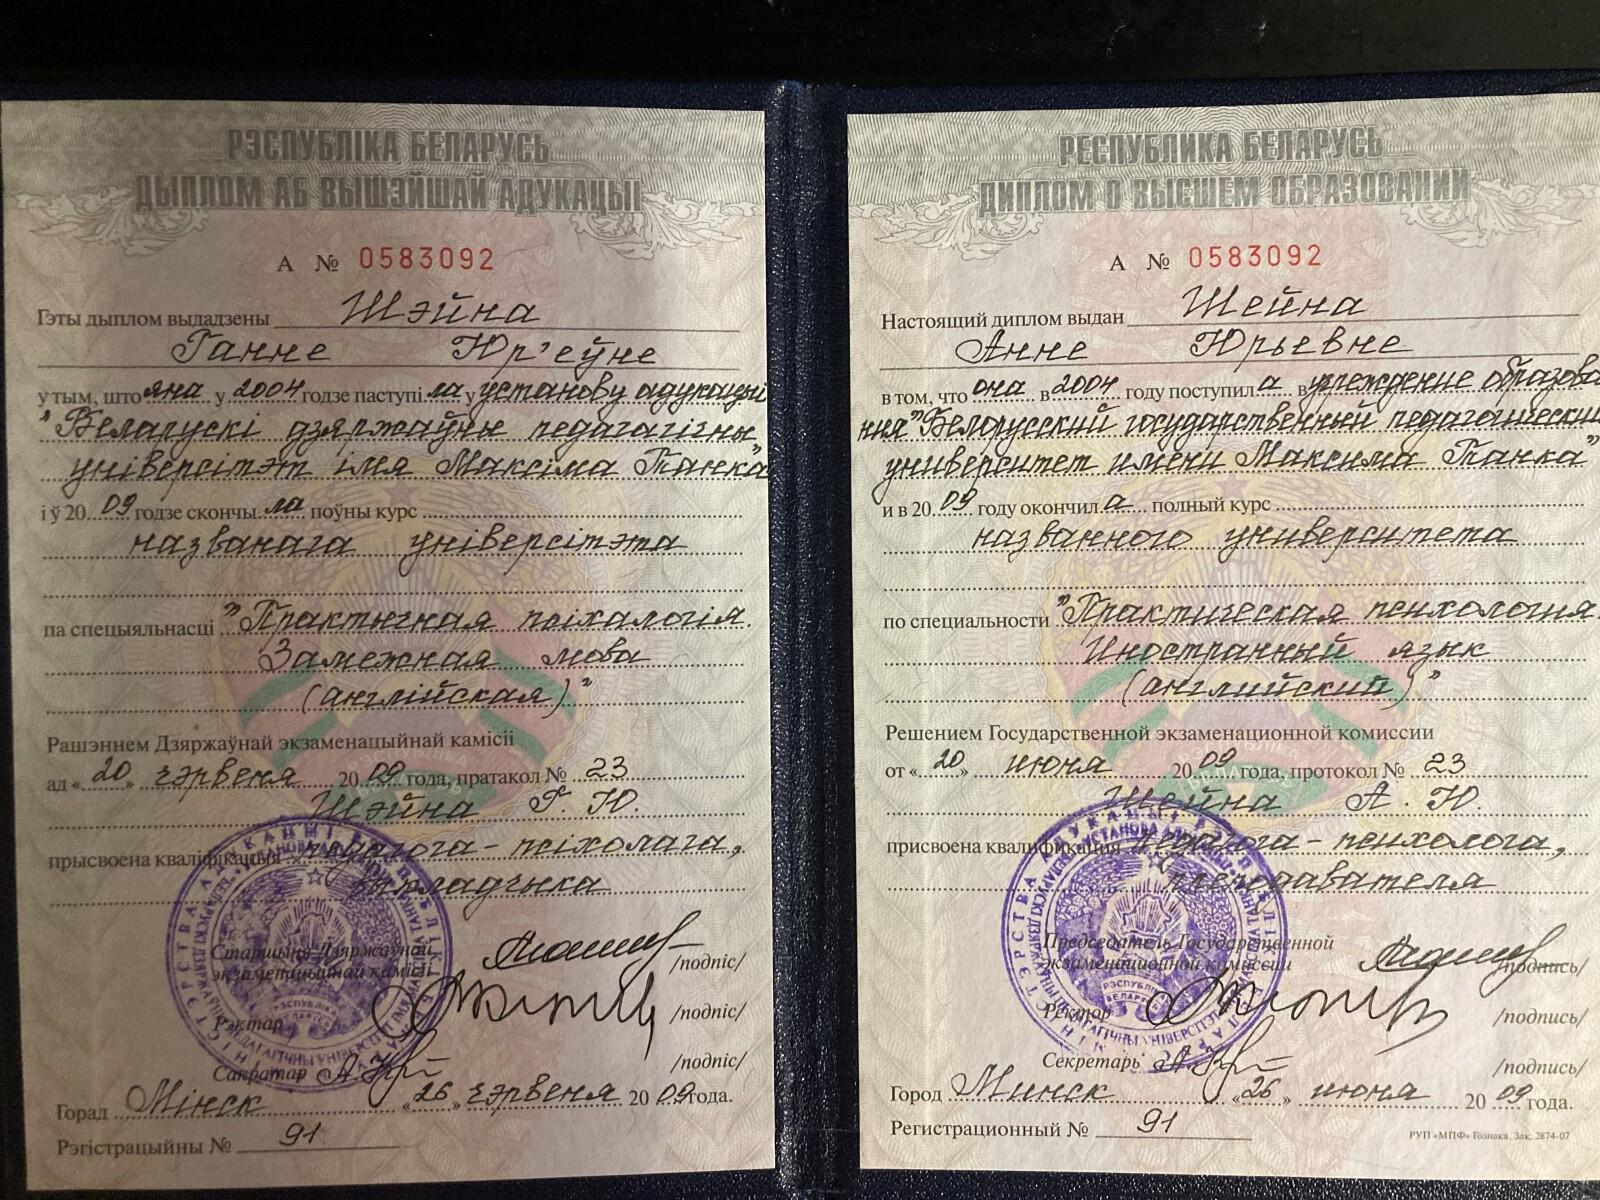 РЭСПУБЛІКА БЕЛАРУСЬ
ДЫПЛОМ АБ ВЫШЭЙШАЙ АДУКАЦЫІ
А № 0583092
Гэты дыплом выдадзены Шэйна
Ганне Юр'еўне
у тым, што яна у 2004 годзе паступі ла у установу адукацыі
"Беларускі дзяржаўны педагагічны
універсітэт імя Максіма Танка"
і ў 20 09 годзе скончы ла поўны курс
названага універсітэта
па спецыяльнасці "Практычная псіхалогія.
Замежная мова
(англійская)"
Рашэннем Дзяржаўнай экзаменацыйнай камісіі
ад « 20 » чэрвеня 20 09 года, пратакол № 23
Шэйна Г. Ю.
прысвоена кваліфікацыя педагога-псіхолага,
выкладчыка
Старшыня Дзяржаўнай
экзаменацыйнай камісіі /подпіс/
Рэктар /подпіс/
Сакратар /подпіс/
Горад Мінск «26» чэрвеня 20 09 года.
Рэгістрацыйны № 91
РЕСПУБЛИКА БЕЛАРУСЬ
ДИПЛОМ О ВЫСШЕМ ОБРАЗОВАНИИ
А № 0583092
Настоящий диплом выдан Шейна
Анне Юрьевне
в том, что она в 2004 году поступил а в учреждение образова
ния "Белорусский государственный педагогический
университет имени Максима Танка"
и в 20 09 году окончил а полный курс
названного университета
по специальности "Практическая психология.
Иностранный язык
(английский)"
Решением Государственной экзаменационной комиссии
от « 20 » июня 20 09 года, протокол № 23
Шейна А. Ю.
присвоена квалификация педагога-психолога,
преподавателя
Председатель Государственной
экзаменационной комиссии /подпись/
Ректор /подпись/
Секретарь /подпись/
Город Минск «26» июня 20 09 года.
Регистрационный № 91
РУП «МПФ» Гознака. Зак. 2874-07